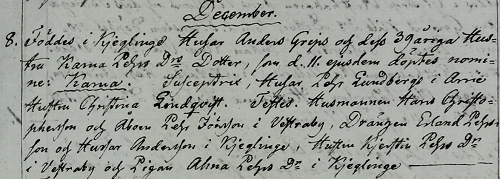 December.
8. Föddes i Kjeglinge Husar Anders Greps och dess 39åriga Hus-
tru Karna Pehrs Drs Dotter, som d. 11 ejusdem döptes nomi-
ne: Karna. Susceptrix, Husar Pehr Lundbergs i Arrie
Hustru Christina Lindqvist. Testes. Husmannen Hans Christo-
phersson och Åboen Pehr Jönsson i Vestraby, Drängen Erland Pehrs-
son och Husar Andersson i Kjeglinge, Hustru Kjerstin Pehrs Dr
i Vestraby och Pigan Alina Pehrs Dr i Kjeglinge